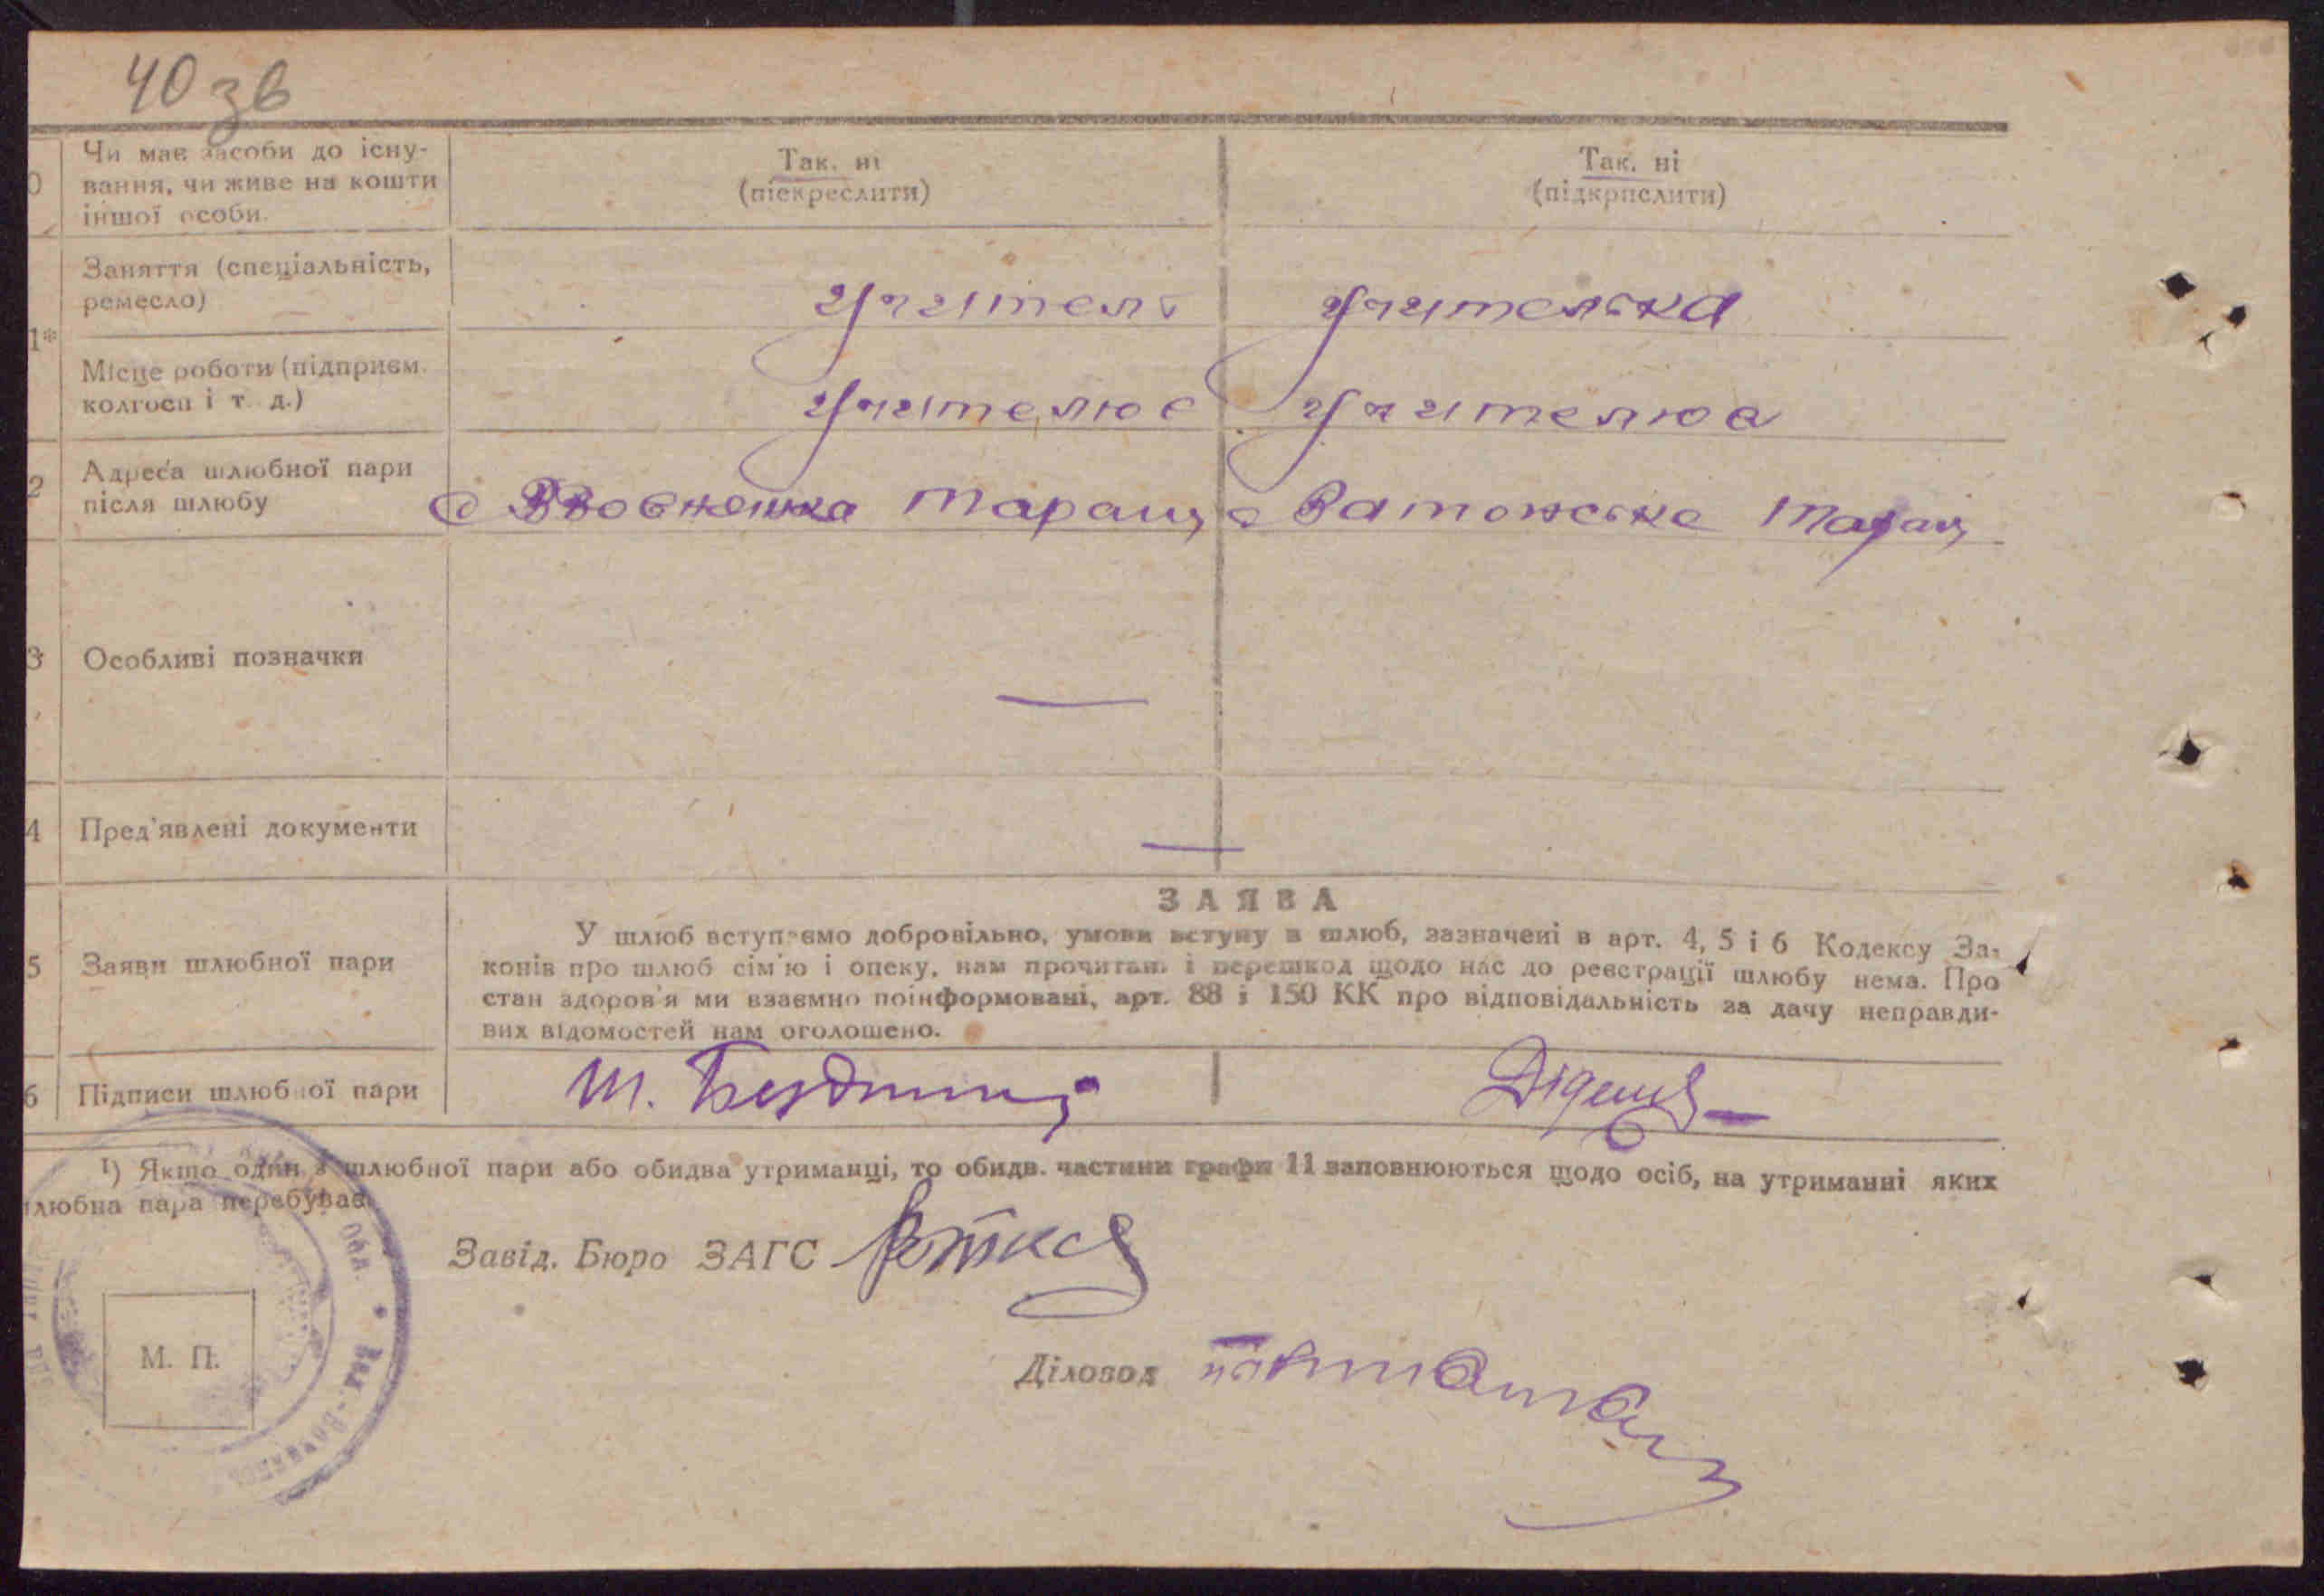 40 зв
0
Чи має засоби до існу-
вання, чи живе на кошти
іншої особи.
Так. ні
(піскреслити)
Так. ні
(підкрислити)
1*
Заняття (спеціальність,
ремесло)
учитель
учителька
Місце роботи (підприєм.
колгосп і т. д.)
учителює
учителює
2
Адреса шлюбної пари
після шлюбу
с Таращ
с Таращ
3
Особливі позначки
—
4
Пред'явлені документи
—
ЗАЯВА
5
Заяви шлюбної пари
У шлюб вступаємо добровільно, умови вступу в шлюб, зазначені в арт. 4, 5 і 6 Кодексу За-
конів про шлюб сім'ю і опеку, нам прочитані і перешкод щодо нас до реєстрації шлюбу нема. Про
стан здоров'я ми взаємно поінформовані, арт. 88 і 150 КК про відповідальність за дачу неправди-
вих відомостей нам оголошено.
6
Підписи шлюбної пари
1) Якщо один з шлюбної пари або обидва утриманці, то обидв. частини графи 11 заповнюються щодо осіб, на утриманні яких
шлюбна пара перебуває.
Завід. Бюро ЗАГС
Діловод
М. П.